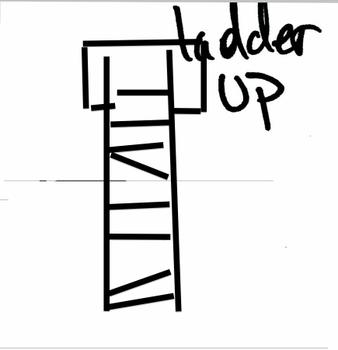 ladder
UP